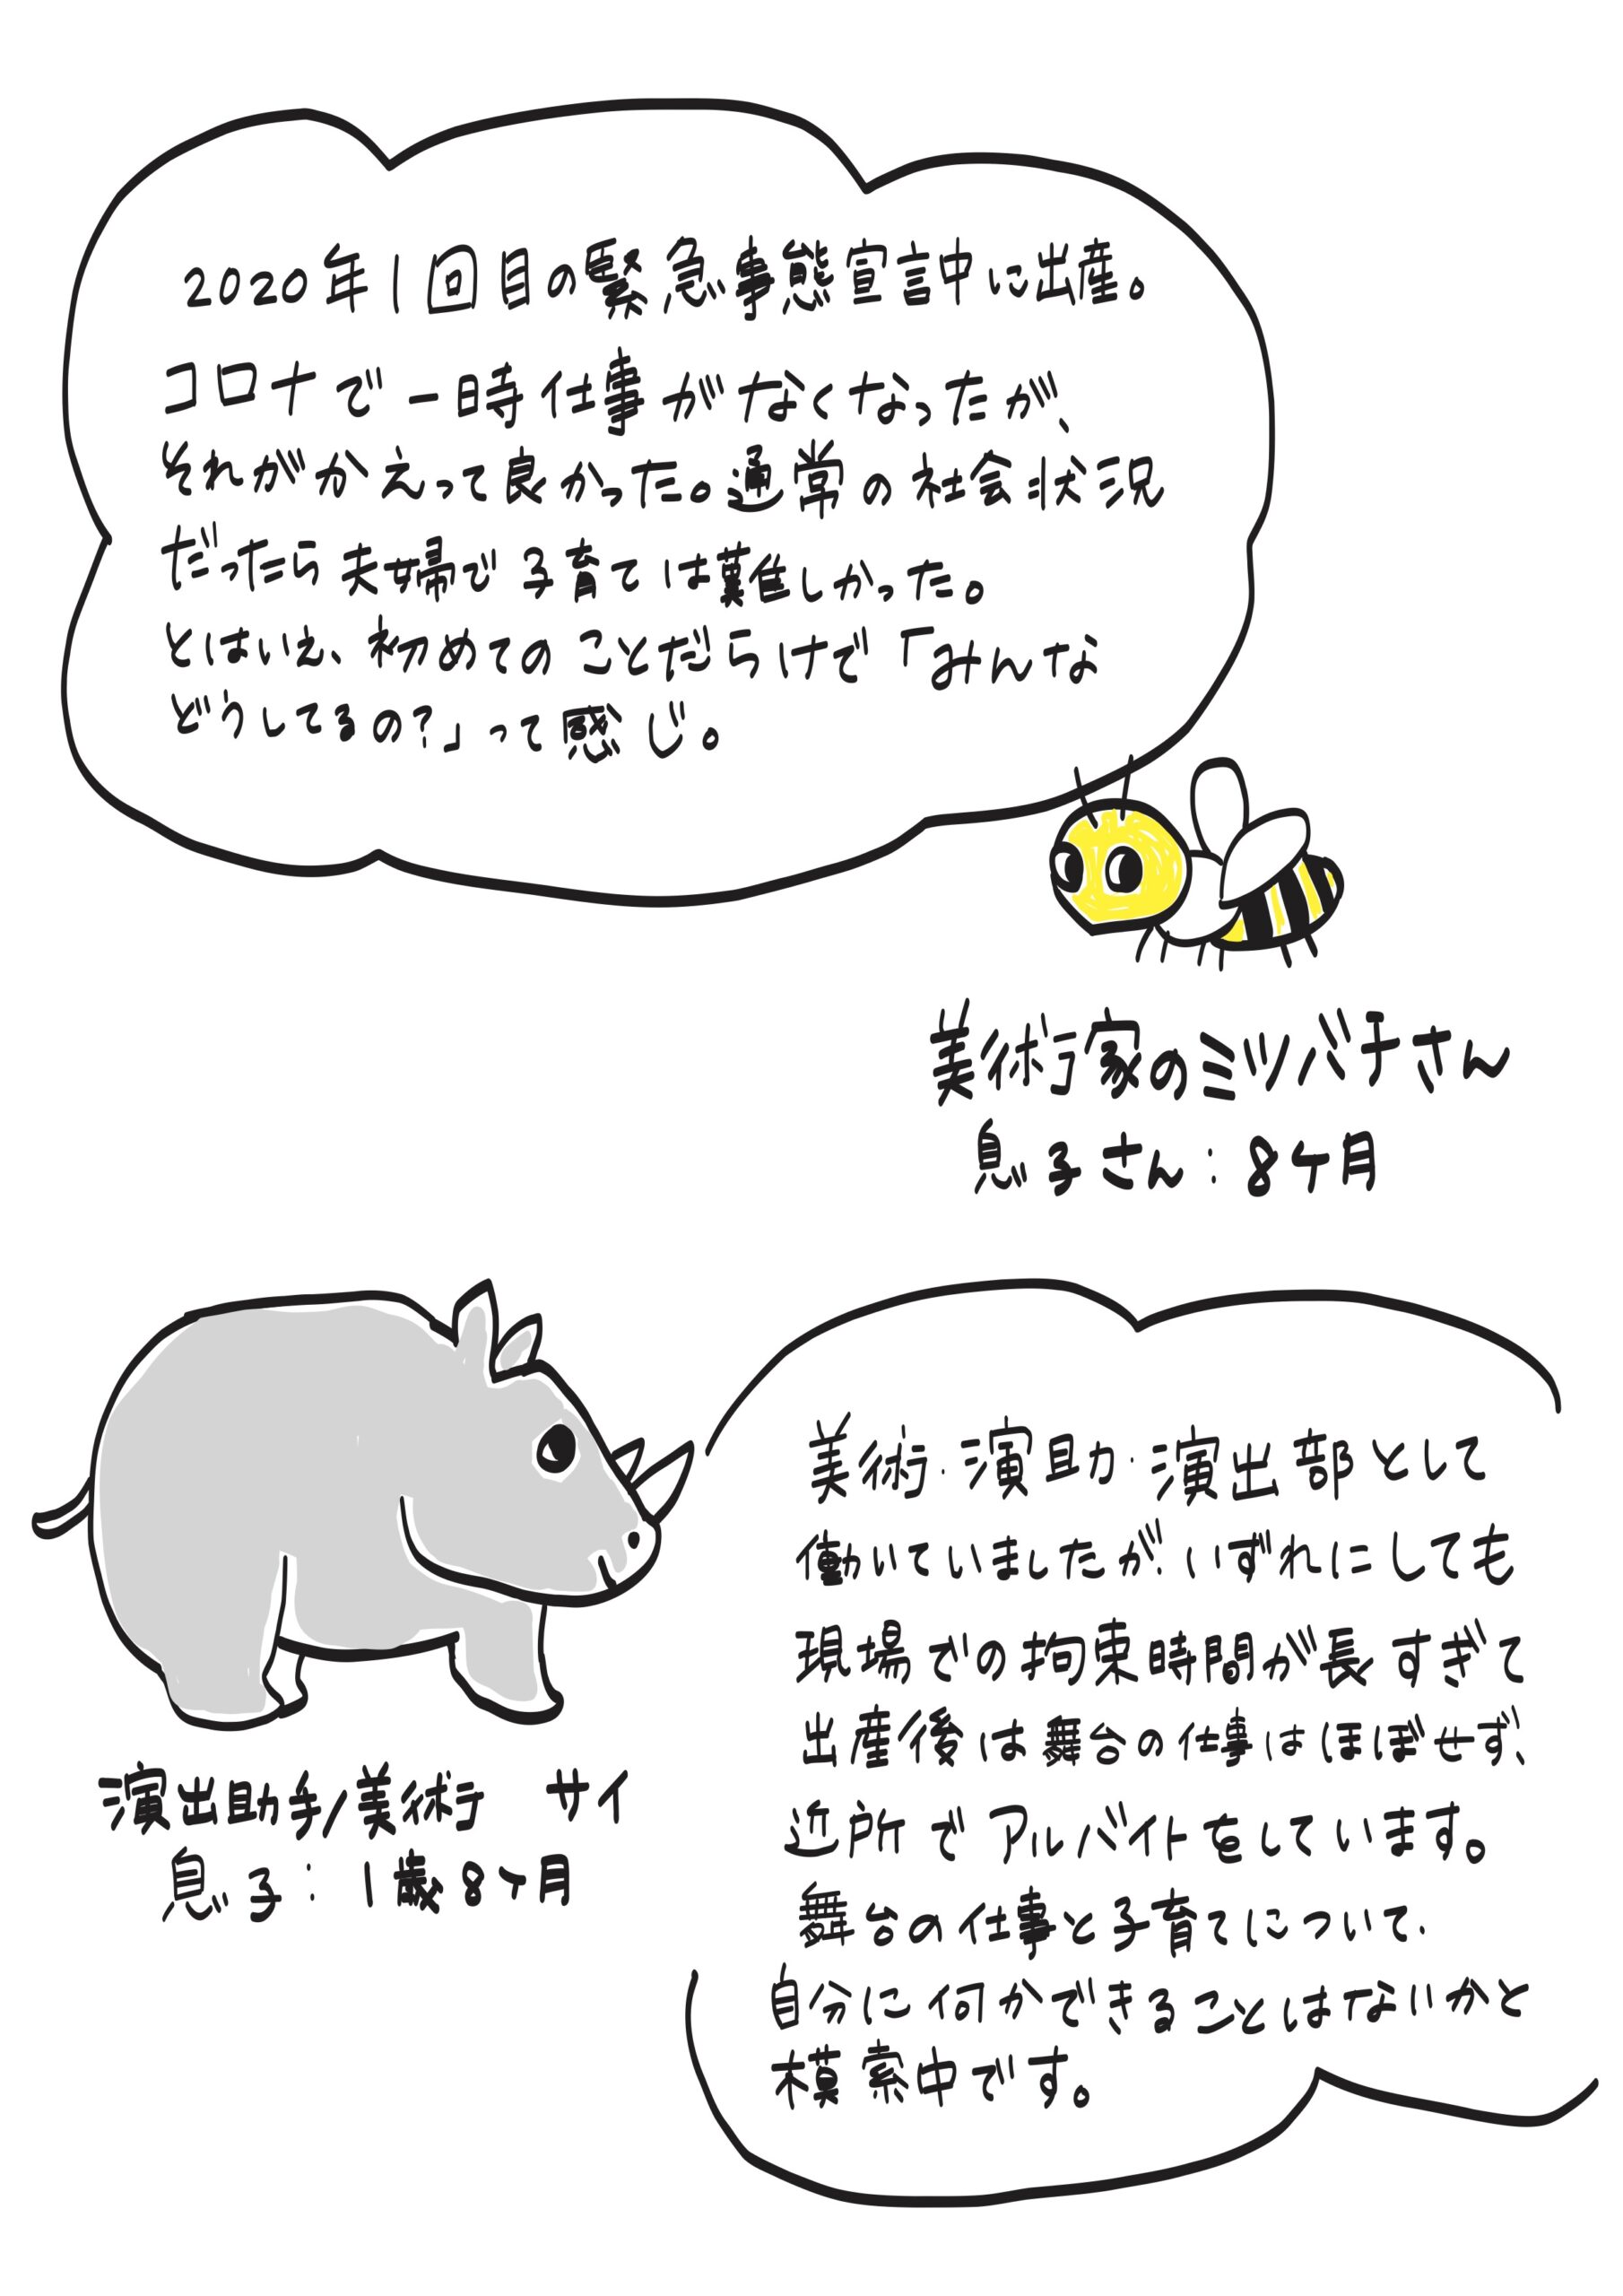 2020年1回目の緊急事態宣言中に出産。
コロナで一時仕事がなくなったが、
それがかえって良かった。通常の社会状況
だったら夫婦で子育ては難しかった。
とはいえ、初めてのことだらけで「みんな
どうしてるの?」って感じ。
美術家のミツバチさん
息子さん:8ヶ月
美術・演助・演出部として
働いていましたが、いずれにしても
現場での拘束時間が長すぎて
出産後は舞台の仕事はほぼせず、
近所でアルバイトをしています。
舞台の仕事と子育てについて、
自分に何かできることはないかと
模索中です。
演出助手/美術 サイ
息子:1歳8ヶ月